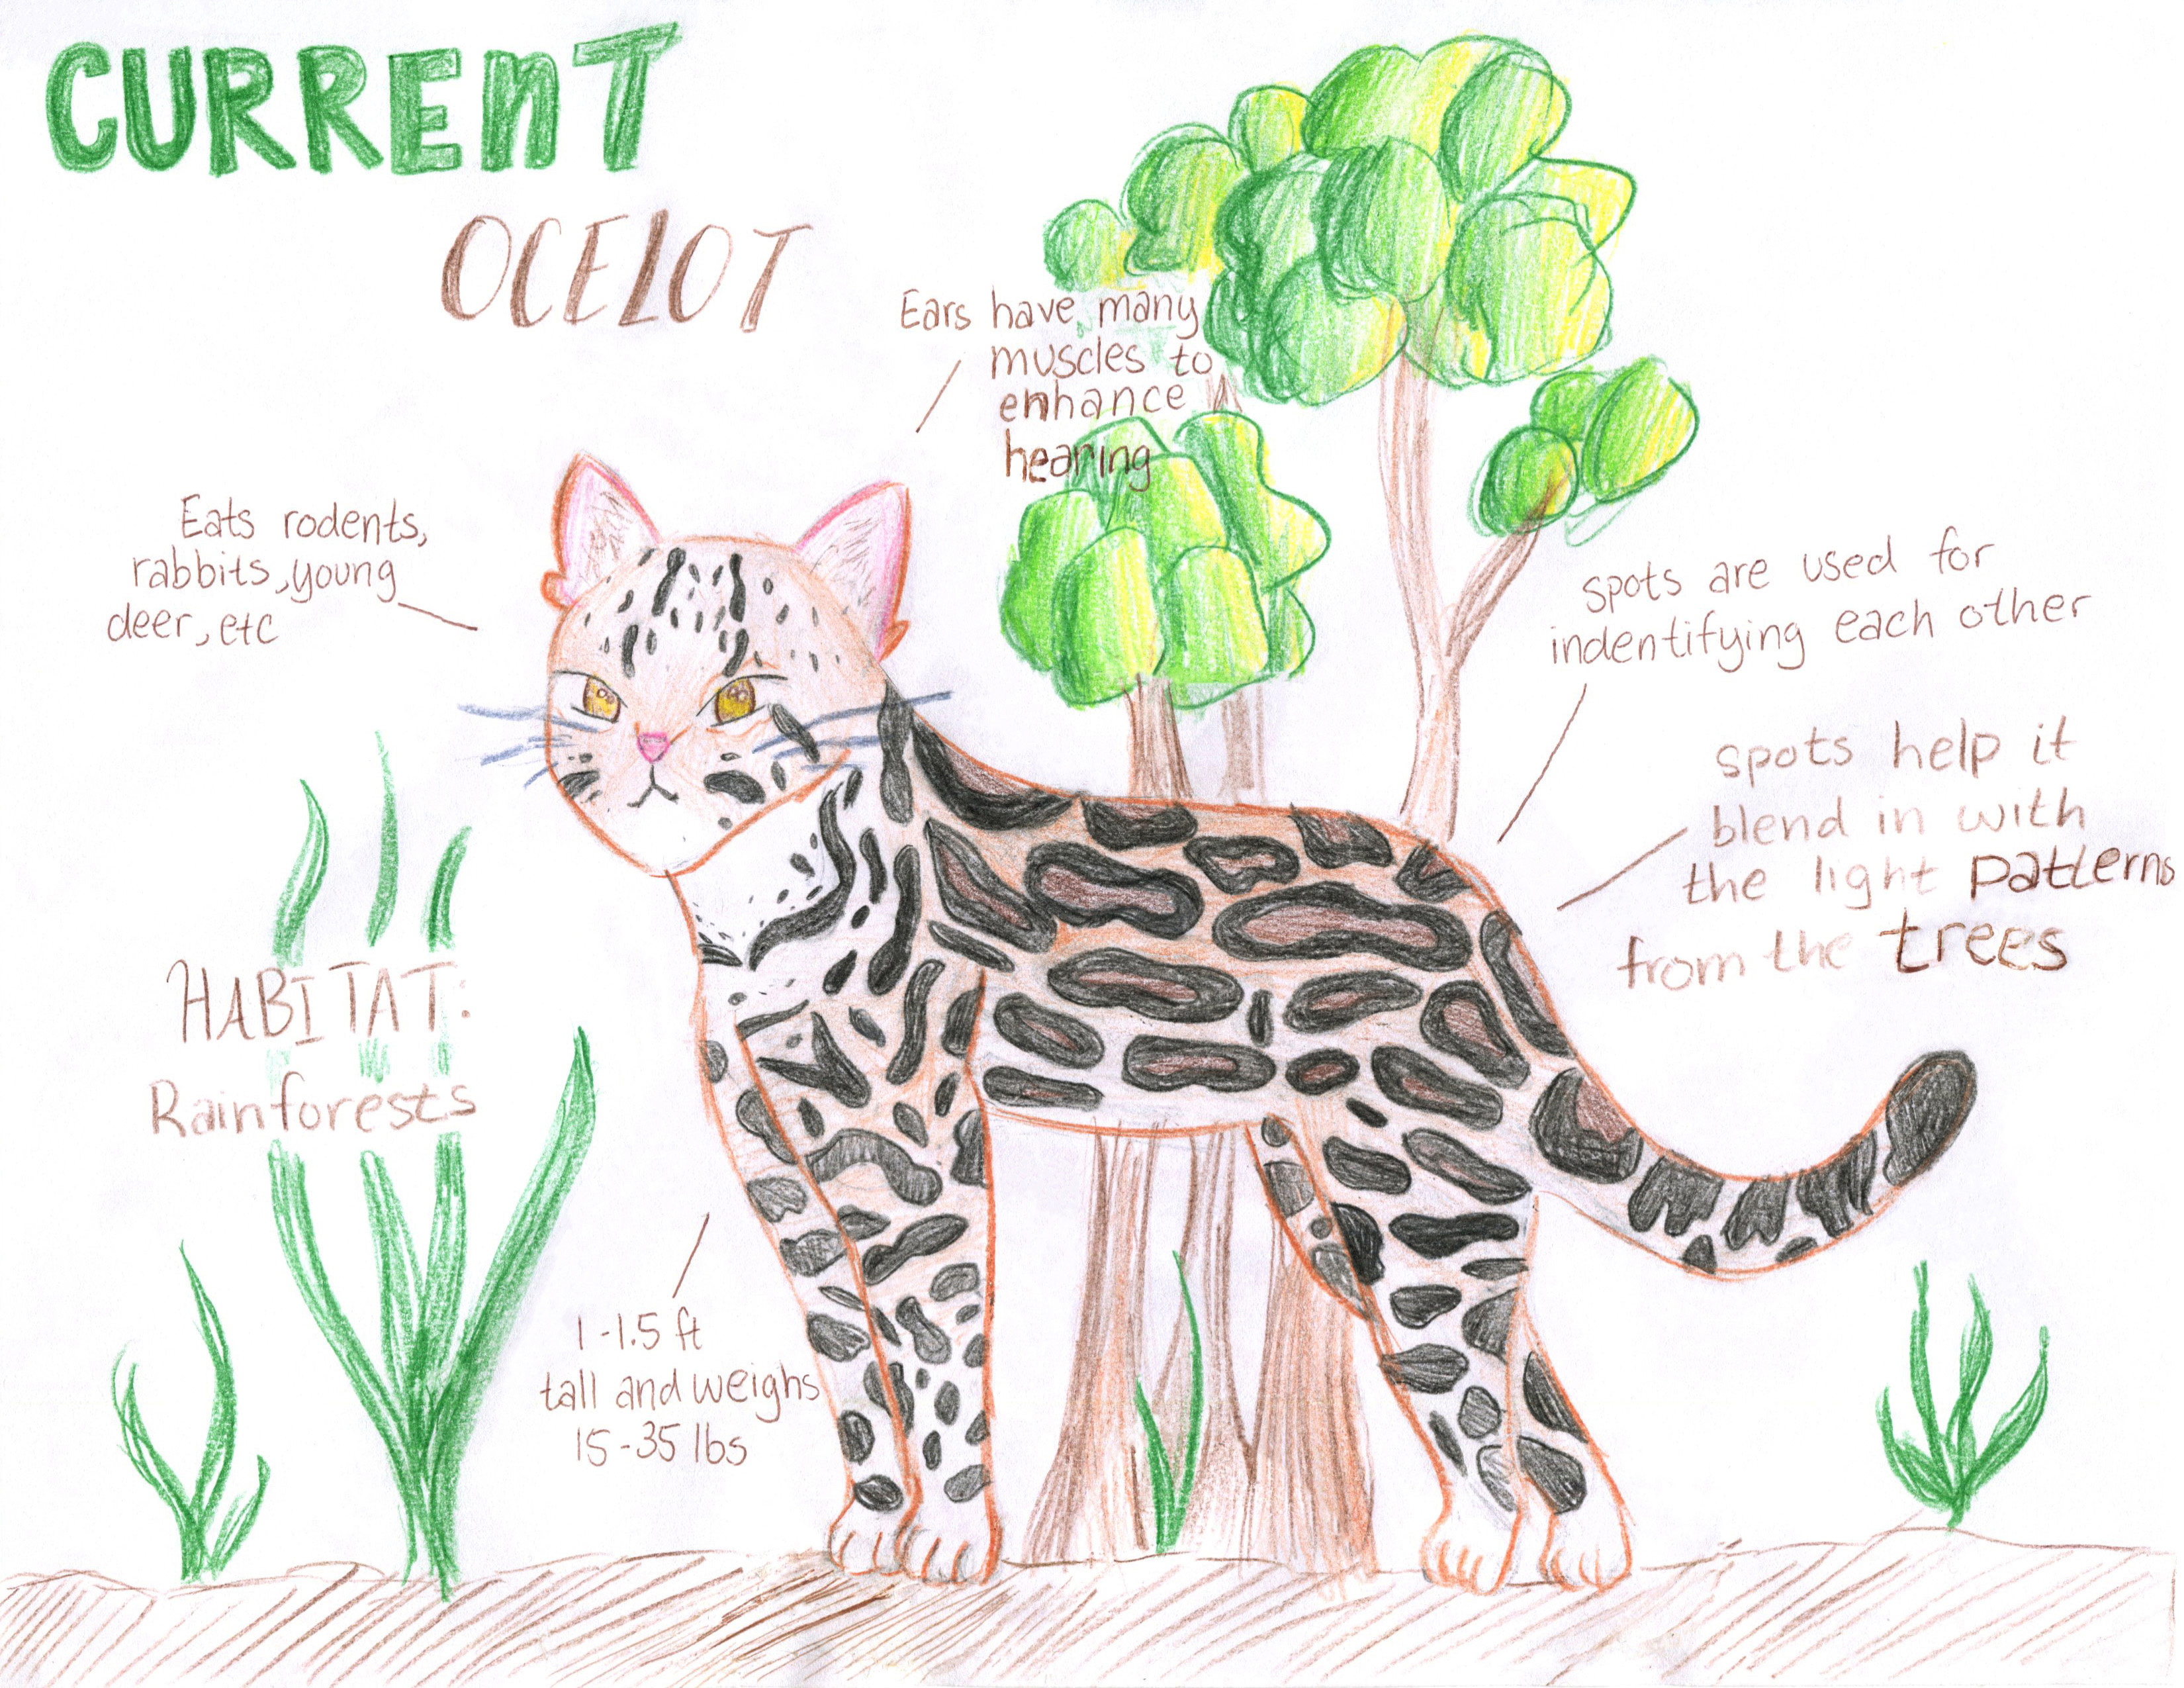 CURRENT
OCELOT
Ears have many
muscles to
enhance
hearing
Eats rodents,
rabbits, young
deer, etc
spots are used for
indentifying each other
spots help it
blend in with
the light patterns
from the trees
HABITAT:
Rainforests
1-1.5 ft
tall and weighs
15-35 lbs